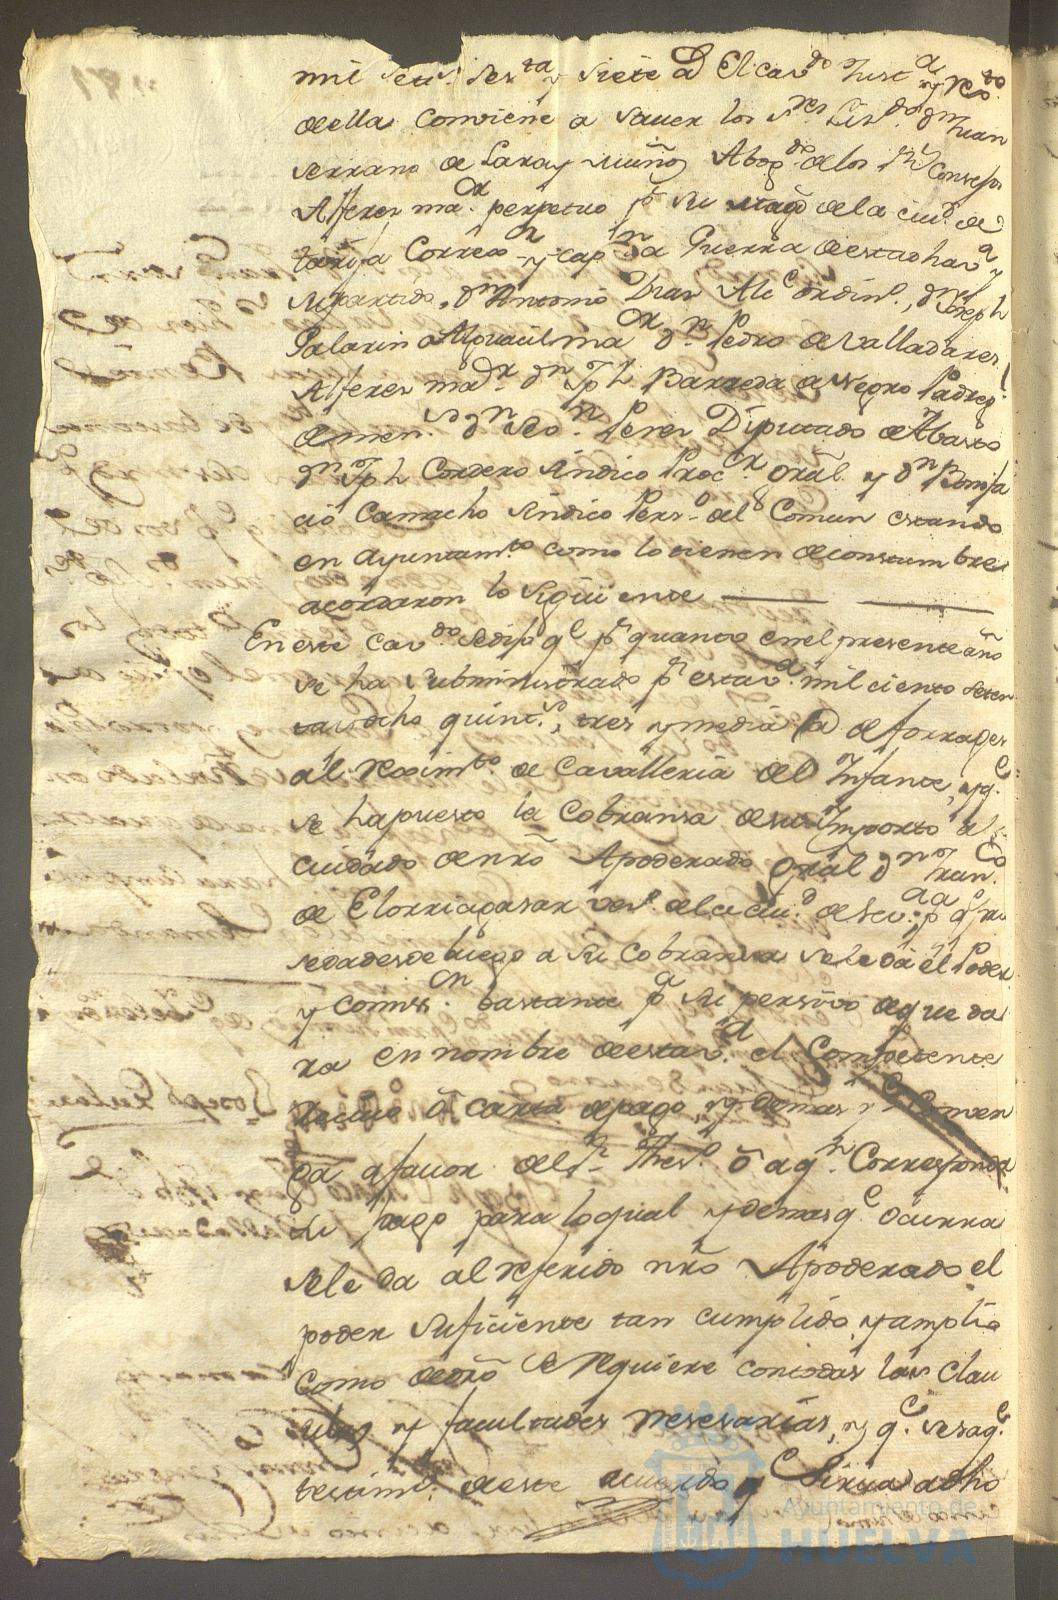 mil setts. sesta. y siete as. El cavdo. Justa. y Rexto.
de ella conviene a saver los Sres. Licdo. dn. Juan
Serrano de Lara y Muñoz Abogdo. de los Rs. Consejos
Alferes maor. perpetuo pr. su Magd. de la ciud. de
tarifa Correxor. y capn. a Guerra de esta dha va. y
su partido, dn. Antonio Dias Alce. ordino., dn. Joseph
Palarin Alguacil maor. dn. Pedro de Valladares
Alferes maor. dn. Jph. Barreda
de menes. dn. Peres Diputado de Abasto
dn. Jph Cordero Sindico Procor. Gral. y dn. Bonifa
cio Camacho Sindico Perso. del Comun estando
en ayuntamto. como lo tienen de constumbre
acordaron lo siguiente
En este cavdo. se dijo qe. pr. quanto en el presente año
se ha subministrado pr. esta va. mil ciento seten
ta y ocho quints., tres y media @ de forrages
al Reximto. de Cavalleria del Infante, y qe.
se ha puesto la Cobransa de su importe al
cuidado de nro Apoderado Gral dn. Franco.
de Elorriaga vesº. de la ciud. de Seva.; pa. qe.
se da desde luego a su Cobransa se le da el Poder
y comisn. bastante pa. su persivo de que da
ra en nombre de esta va. el Competente
Recivo ô carta de pago, y demas qe. Conven
ga a favor del Sr. Theso. ô a qn. Corresponda
su pago para lo qual y demas qe. ocurra
se le da al referido nro Apoderado el
poder suficiente tan cumplido, y amplio
como de dro se requiere con todas las clau
sulas y facultades nesesarias, y qe. se saqe.
testimo. de este acuerdo qe. Sirva a dho
Ayuntamiento de
HUELVA